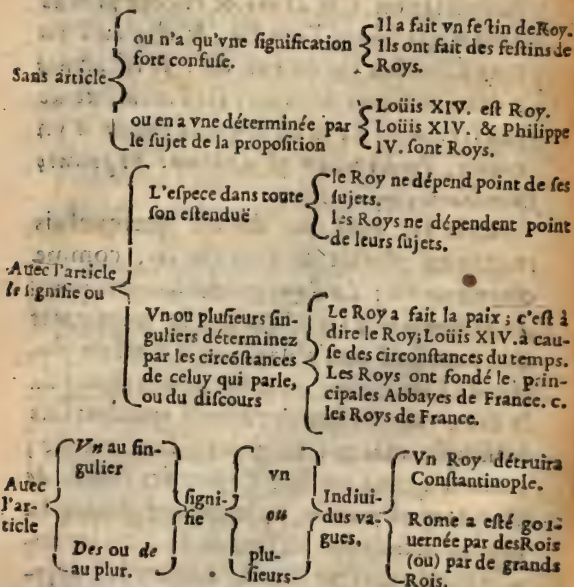 Sans article
ou n'a qu'vne ſignification
fort confuſe.
Il a fait vn feſtin de Roy.
Ils ont fait des feſtins de
Roys.
ou en a vne déterminée par
le ſujet de la propoſition
Loüis XIV. eſt Roy.
Loüis XIV. & Philippe
IV. ſont Roys.
Auec l'article
le ſignifie ou
L'eſpece dans toute
ſon eſtenduë
le Roy ne dépend point de ſes
ſujets.
les Roys ne dépendent point
de leurs ſujets.
Vn ou pluſieurs ſin-
guliers déterminez
par les circõſtances
de celuy qui parle,
ou du diſcours
Le Roy a fait la paix ; c'eſt à
dire le Roy; Loüis XIV. à cau-
ſe des circonſtances du temps.
Les Roys ont fondé le prin-
cipales Abbayes de France. c.
les Roys de France.
Auec
l'ar-
ticle
Vn au ſin-
gulier
Des ou de
au plur.
ſigni-
fie
vn
ou
plu-
ſieurs
Indiui-
dus va-
gues.
Vn Roy détruira
Conſtantinople.
Rome a eſté gou-
uernée par des Rois
(ou) par de grands
Rois.